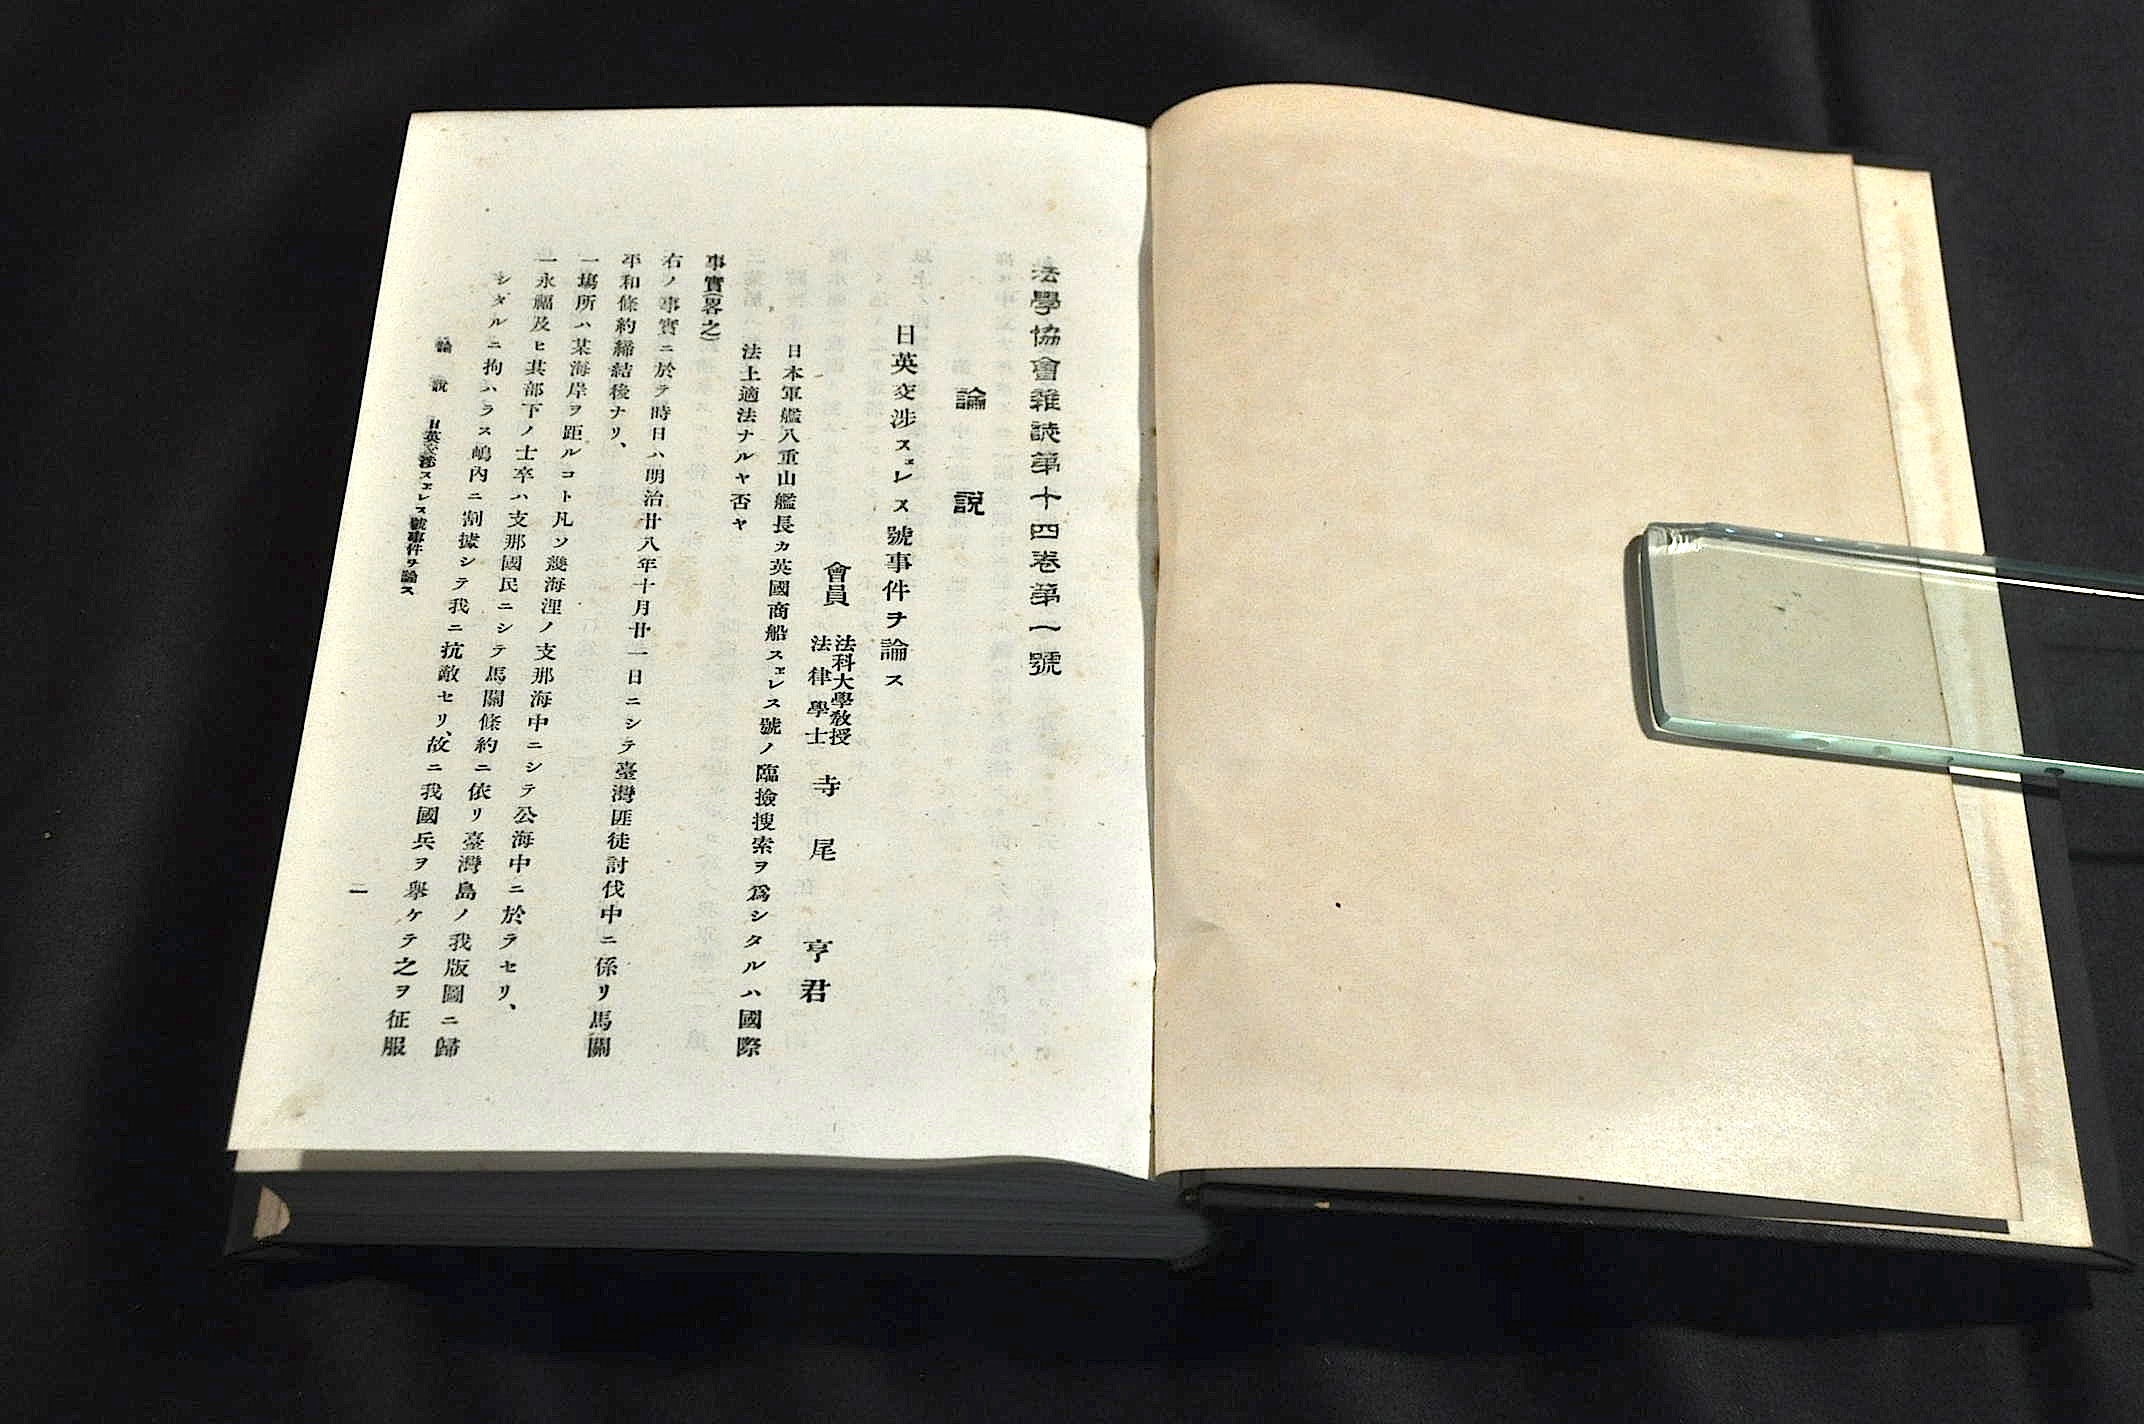 法學協會雜誌第十四卷第一號
論說
日英交渉スェレス號事件ヲ論ス
會員 法科大學敎授 法律學士 寺尾亨君
日本軍艦八重山艦長カ英國商船スェレス號ノ臨撿搜索ヲ爲シタルハ國際
法上適法ナルヤ否ヤ
事實(畧之)
右ノ事實ニ於テ時日ハ明治廿八年十月廿一日ニシテ臺灣匪徒討伐中ニ係リ馬關
平和條約締結後ナリ、
一塲所ハ某海岸ヲ距ルコト凡ソ幾海浬ノ支那海中ニシテ公海中ニ於テセリ、
一永福及ヒ其部下ノ士卒ハ支那國民ニシテ馬關條約ニ依リ臺灣島ノ我版圖ニ歸
シタルニ拘ハラス嶋內ニ割據シテ我ニ抗敵セリ、故ニ我國兵ヲ舉ケテ之ヲ征服
論說 日英交渉スェレス號事件ヲ論ス
一